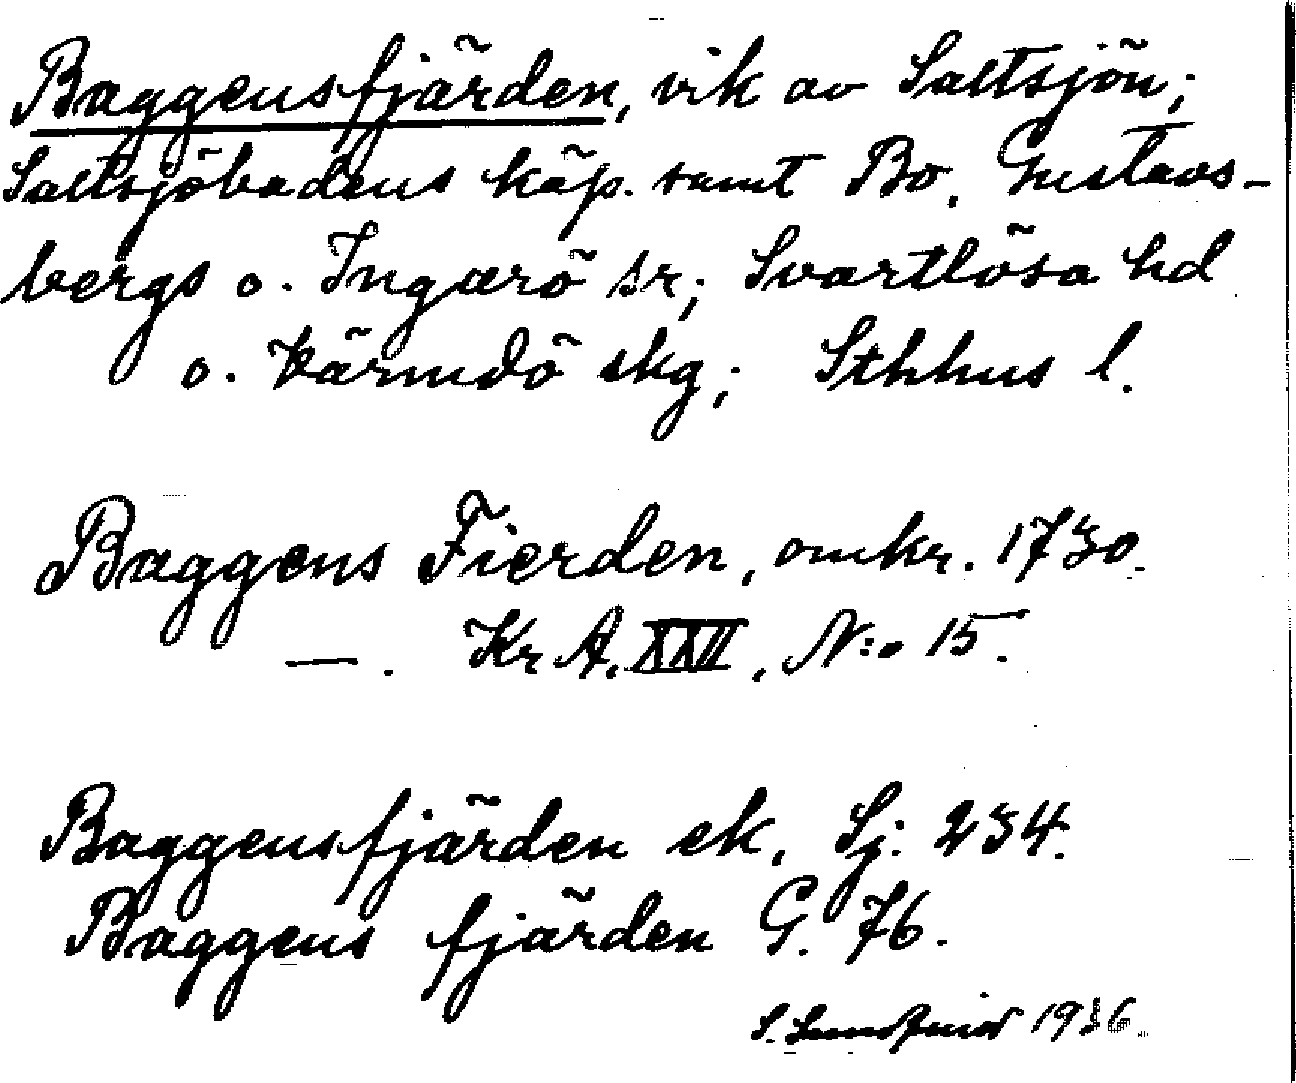 Baggensfjärden, vik av Saltsjön;
Saltsjöbadens köp. samt Bo, Gustavs-
bergs o. Ingarö sr; Svartlösa hd
o. Värmdö skg; Sthlms l.
Baggens Fierden, omkr. 1730.
—. Kr A. XXII, N:o 15.
Baggensfjärden ek. Sj. 234.
Baggens fjärden G. 76.
S. 1936.